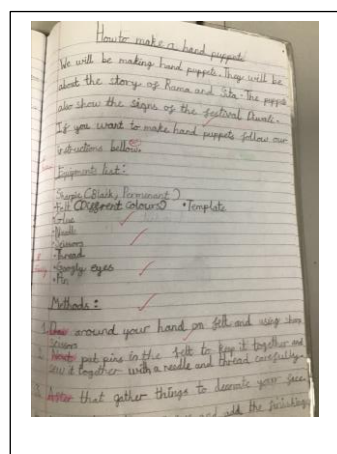 How to make a hand puppets
We will be making hand puppets. They will be
about the story of Rama and Sita. The puppets
also show the signs of the festival Diwali.
If you want to make hand puppets follow our
instructions bellow.
Equipments list:
Sharpie (Black, Permenant)
Felt (Different colours) • Template
• Glue
• Needle
• Scissors
• Thread
• Googly eyes
• Pin
Methods:
1. Draw around your hand on felt and using sharp
scissors
2. Next put pins in the felt to keep it together and
sew it together with a needle and thread carefully.
3. After that gather things to decorate your face
and add the finishing